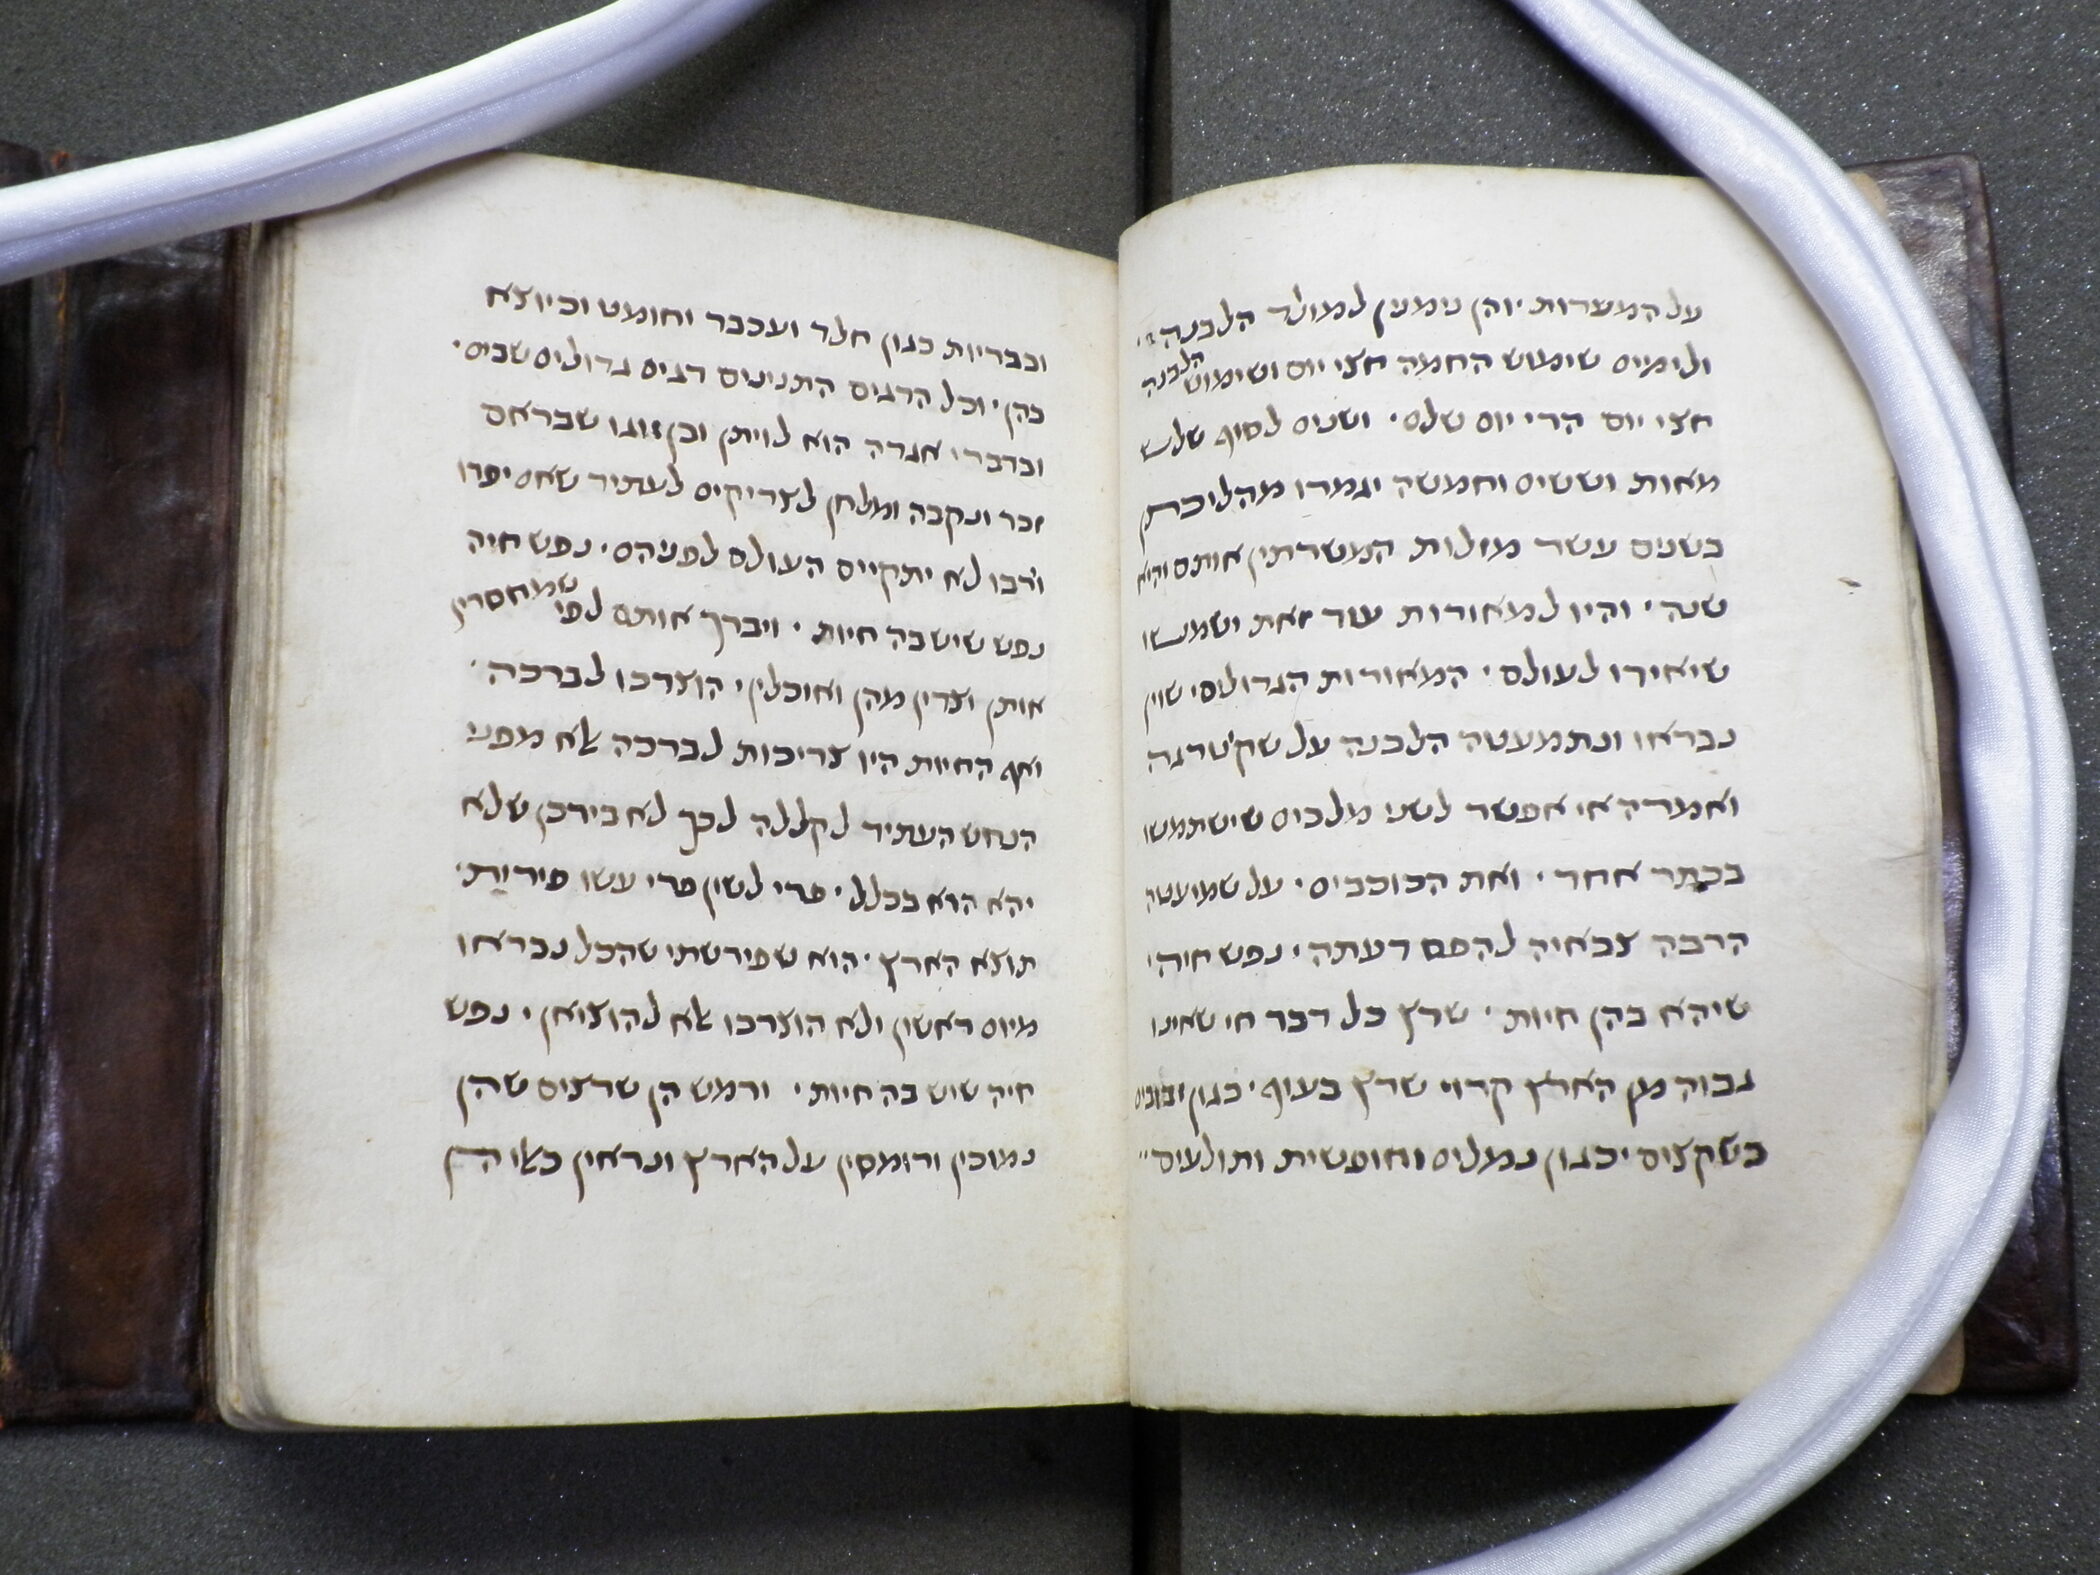 על המערות יוהן נימנין למולד הלבנה׳
ולימים שימוש החמה חצי יום ושימוש הלבנה
חצי יום הרי יום שלם׳ ושנים לסוף שלש
מאות וששים וחמשה יגמרו מהליכתן
בשנים עשר מזלות המשרתין אותם והיא
שנה׳ והיו למאורות עוד זאת ישמשו
שיאירו לעולם׳ המאורות הגדולים׳ שוין
נבראו ונתמעטה הלבנה על שקיטרגה
ואמרה אי אפשר לשני מלכים שישתמשו
בכתר אחד׳ ואת הכוכבים׳ על שמיעטה
הרבה צבאיה להפס דעתה׳ נפש חיה׳
שיהא בהן חיות׳ שרץ כל דבר חי שאינו
גבוה מן הארץ קרוי שרץ בעוף׳ כגון זבובים
בשקצים יכגון נמלים וחופשית ותולעים״
ובבריות כגון חלד ועכבר וחומט וכיוצא
בהן׳ וכל הדגים התנינים דגים גדולים שבים׳
ובדברי אגדה הוא לויתן ובן זוגו שבראם
זכר ונקבה ומלחן לצדיקים לעתיד שאם יפרו
וירבו לא יתקיים העולם לפניהם׳ נפש חיה
נפש שישבה חיות׳ ויברך אותם לפי שמחסרין
אותן וצדין מהן ואוכלין׳ הוצרכו לברכה׳
ואף החיות היו צריכות לברכה אלא מפני
הנחש העתיד לקללה לכך לא בירכן שלא
יהא הוא בכלל׳ פרי לשון פרי עשו פירות׳
תוצא הארץ׳ הוא שפירשתי שהכל נבראו
מיום ראשון ולא הוצרכו אלא להוציאן׳ נפש
חיה שיש בה חיות׳ ורמש הן שרצים שהן
נמוכין ורומסין על הארץ ונראין כאלו הן